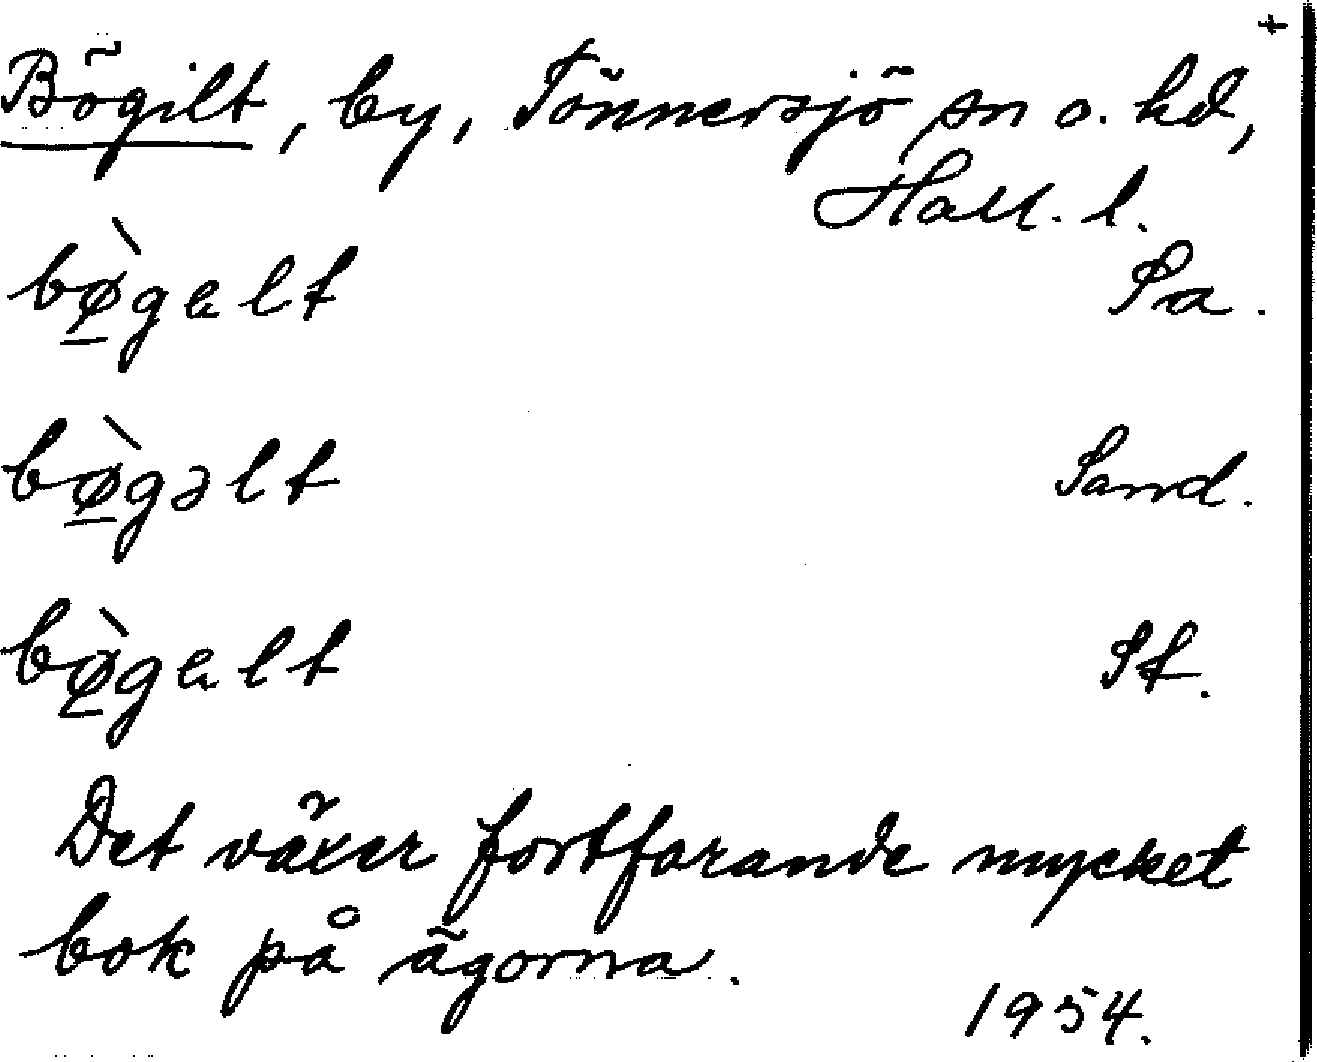 +
Bögilt, by, Tönnersjö sn o. hd,
Hall. l.
bø̲̀gelt Sa.
bø̲̀gəlt Sand.
bø̲̀gelt St.
Det växer fortfarande mycket
bok på ägorna.
1954.